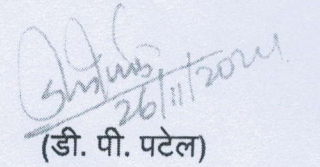 26/11/2024
(डी. पी. पटेल)